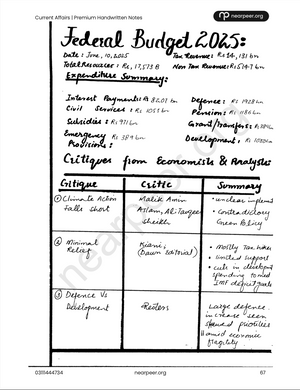 Current Affairs | Premium Handwritten Notes
nearpeer.org
Federal Budget 2025:
Date: June, 10, 2025
Tax Revenue: Rs 14, 131 bn
Total Resources: Rs, 17,573 B
Non Tax Revenue: Rs 5147 bn
Expenditure Summary:
Interest Payments: Rs 8207 bn
Defence: Rs
Civil Services: Rs
Pension: Rs
Subsidies: Rs
Grant/Transfers: Rs
Emergency Provisions: Rs 389 bn
Development: Rs
Critiques from Economists & Analysts
Critique
Critic
Summary
① Climate Action Falls Short
Malik Amin Aslam, Ali Tauqeer Sheikh
• unclear
• Contradictory Green Policy
② Minimal Relief
(Dawn Editorial)
• Mostly Tax
• limited support
• cuts in development spending to meet IMF
③ Defence Vs Development
Reuters
Large defence increase seen
amid economic fragility
03111444734
nearpeer.org
67